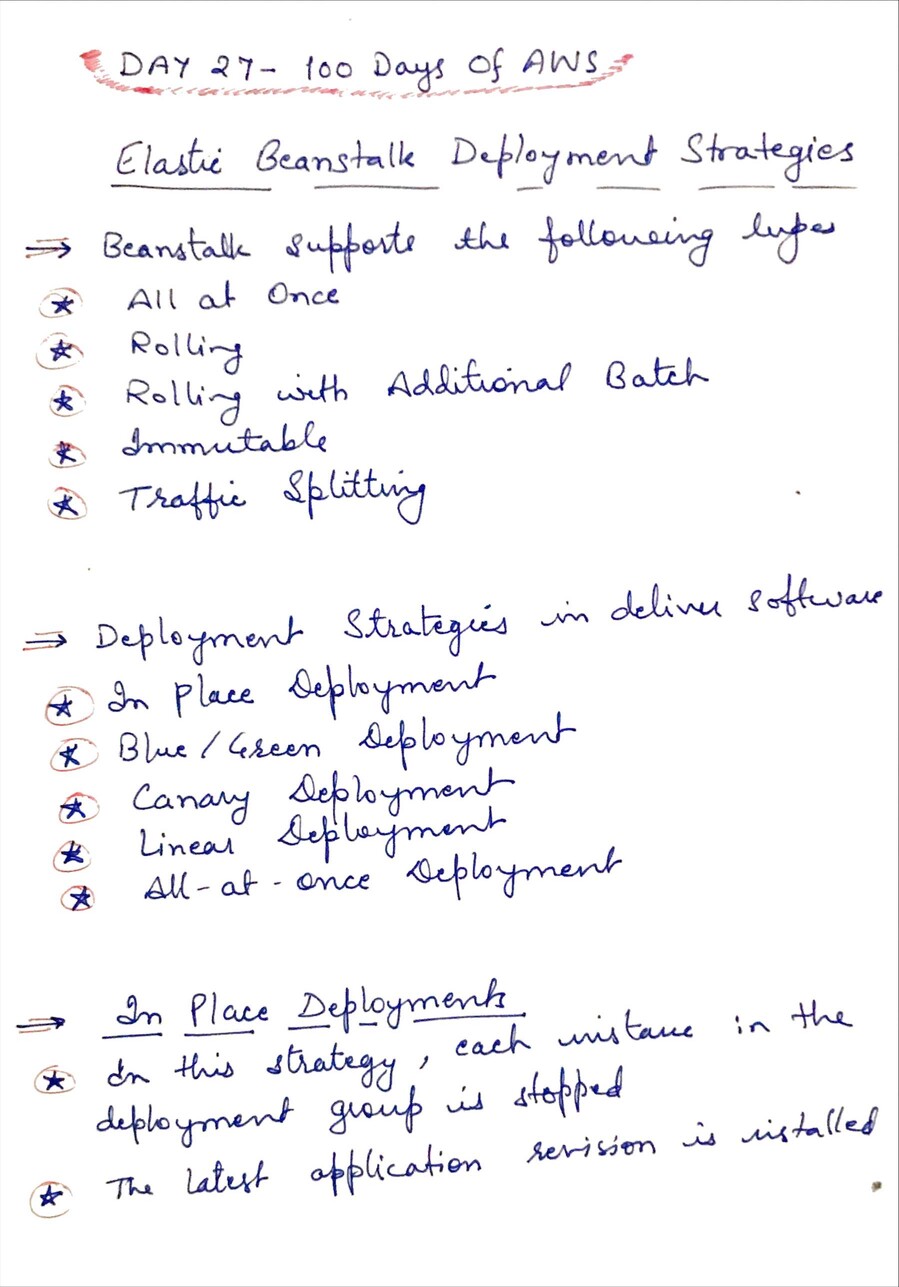 DAY 27- 100 Days Of AWS
Elastic Beanstalk Deployment Strategies
⇒ Beanstalk supports the following types
★ All at Once
★ Rolling
★ Rolling with Additional Batch
★ Immutable
★ Traffic Splitting
⇒ Deployment Strategies in deliver software
★ In place Deployment
★ Blue / Green Deployment
★ Canary Deployment
★ Linear Deployment
★ All-at-once Deployment
⇒ In Place Deployments
★ In this strategy, each instance in the
deployment group is stopped
★ The latest application revision is installed